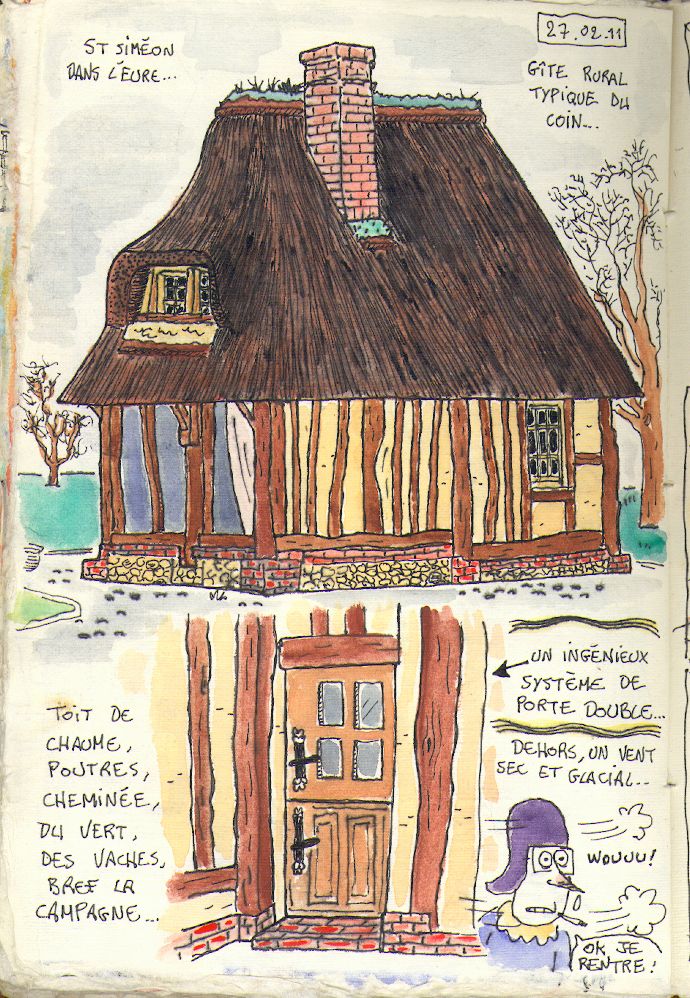 ST SIMÉON
DANS L'EURE...
27.02.11
GÎTE RURAL
TYPIQUE DU
COIN...
UN INGÉNIEUX
SYSTÈME DE
PORTE DOUBLE...
TOIT DE
CHAUME,
POUTRES,
CHEMINÉE,
DU VERT,
DES VACHES,
BREF LA
CAMPAGNE...
DEHORS, UN VENT
SEC ET GLACIAL...
WOUUU!
OK JE
RENTRE!